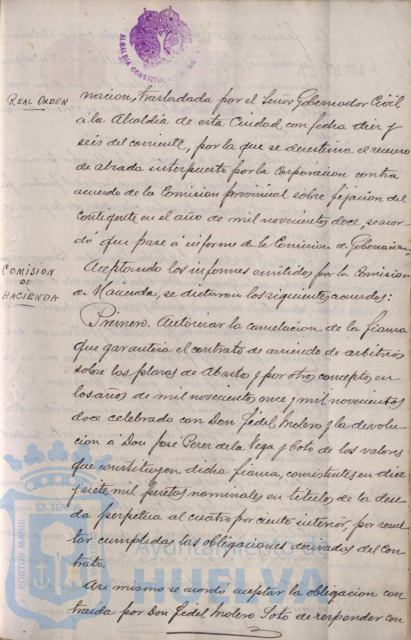 ALCALDÍA CONSTITUCIONAL
REAL ORDEN
nacion, trasladada por el Señor Gobernador Civil
á la Alcaldia de esta Ciudad, con fecha diez y
seis del corriente, por la que se desestima el recurso
de alzada interpuesto por la Corporacion contra
acuerdo de la Comision provincial sobre fijacion del
Contigente en el año de mil novecientos doce, se acor-
dó que pase á informe de la Comision de Gobernacion.
COMISION
DE
HACIENDA
Aceptando los informes emitidos por la Comision
de Hacienda, se dictaron los siguientes acuerdos:
Primero. Autorizar la cancelacion de la fianza
que garantiza el contrato de arriendo de arbitrios
sobre las plazas de Abasto y por otros conceptos en
los años de mil novecientos once y mil novecientos
doce celebrado con Don Fidel Molero y la devolu-
cion á Don José Perez de la Vega y Coto de los valores
que constituyen dicha fianza, consistentes en diez
y siete mil pesetas nominales en titulos de la deu-
da perpetua al cuatro por ciento interior, por resul-
tar cumplidas las obligaciones derivadas del con-
trato.
Asi mismo se acordo aceptar la obligacion con-
traida por Don Fidel Molero Soto de responder con
PORTUS MARIS
ET TER
Ayuntamiento de
HUELVA